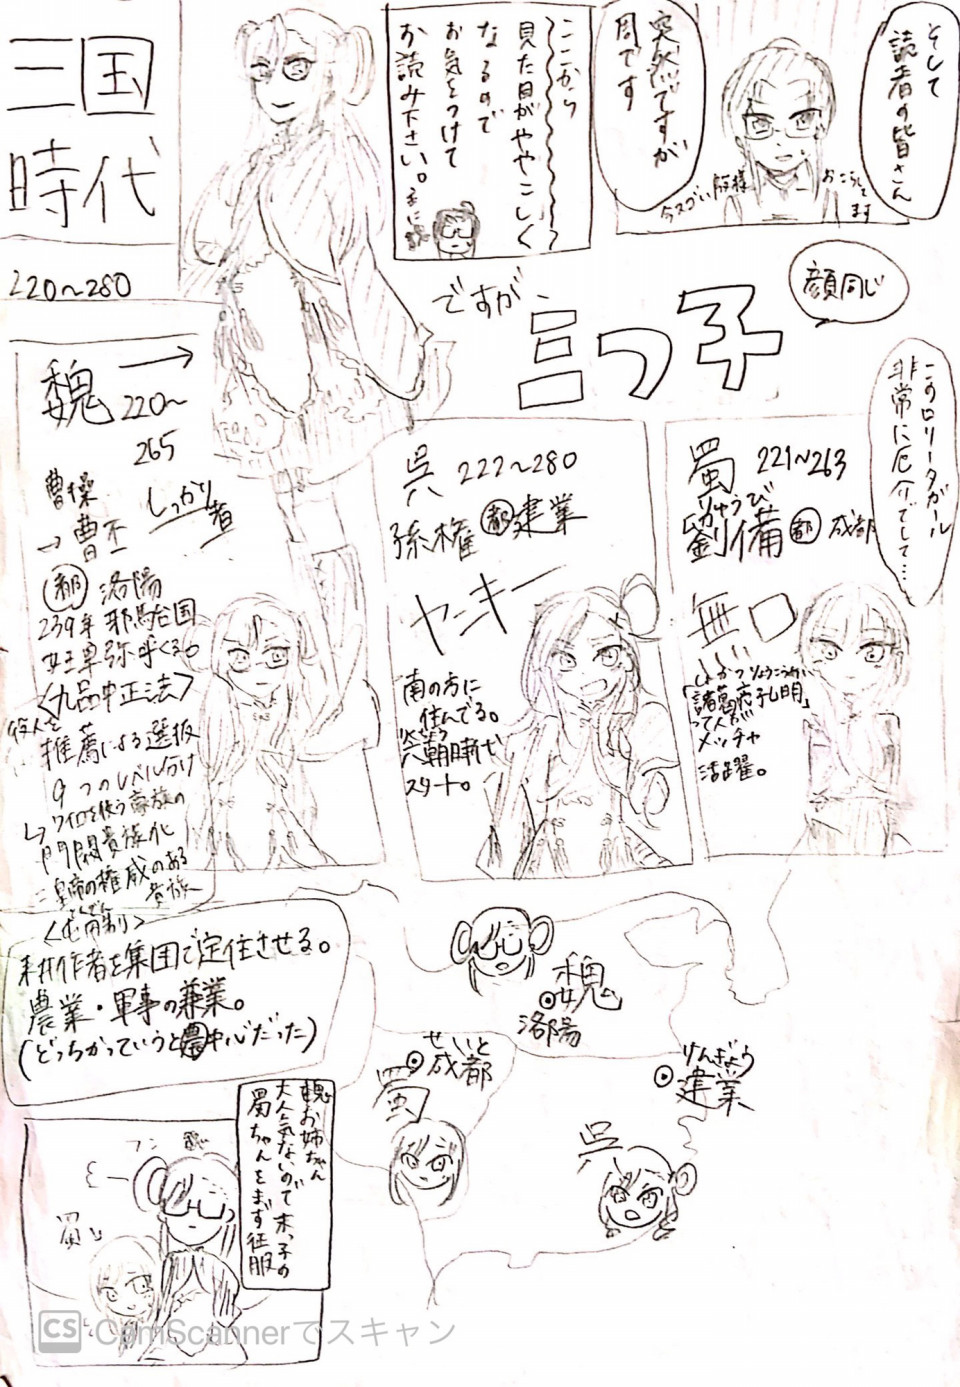 そして
読者の皆さん
突然ですが
周です
今スゴい体勢
おこらせて
ます
ここから
見た目がややこしく
なるので
お気をつけて
お読み下さい。
三国
時代
220〜280
ですが、
三つ子
顔同じ
このロリータガール
非常に厄介でして…
魏
220〜
265
曹操
→曹丕
しっかり者
都 洛陽
239年 邪馬台国
女王卑弥呼くる。
〈九品中正法〉
役人を
推薦による選抜
9つのレベル分け
↳ワイロを使う豪族の
門閥貴族化
=皇帝の権威のある
貴族
〈屯田制〉
耕作者を集団で定住させる。
農業・軍事の兼業。
(どっちかっていうと農中心だった)
呉 222〜280
孫権 都 建業
ヤンキー
南の方に
住んでる。
六朝時代
スタート。
蜀 221〜263
りゅうび
劉備 都 成都
無口
しょかつりょうこうめい
「諸葛亮孔明」
って人が
メッチャ
活躍。
魏
洛陽
せいと
成都
蜀
けんぎょう
建業
呉
魏お姉ちゃん
大人気ないので末っ子の
蜀ちゃんをまず征服
フン
魏
蜀
CS CamScannerでスキャン